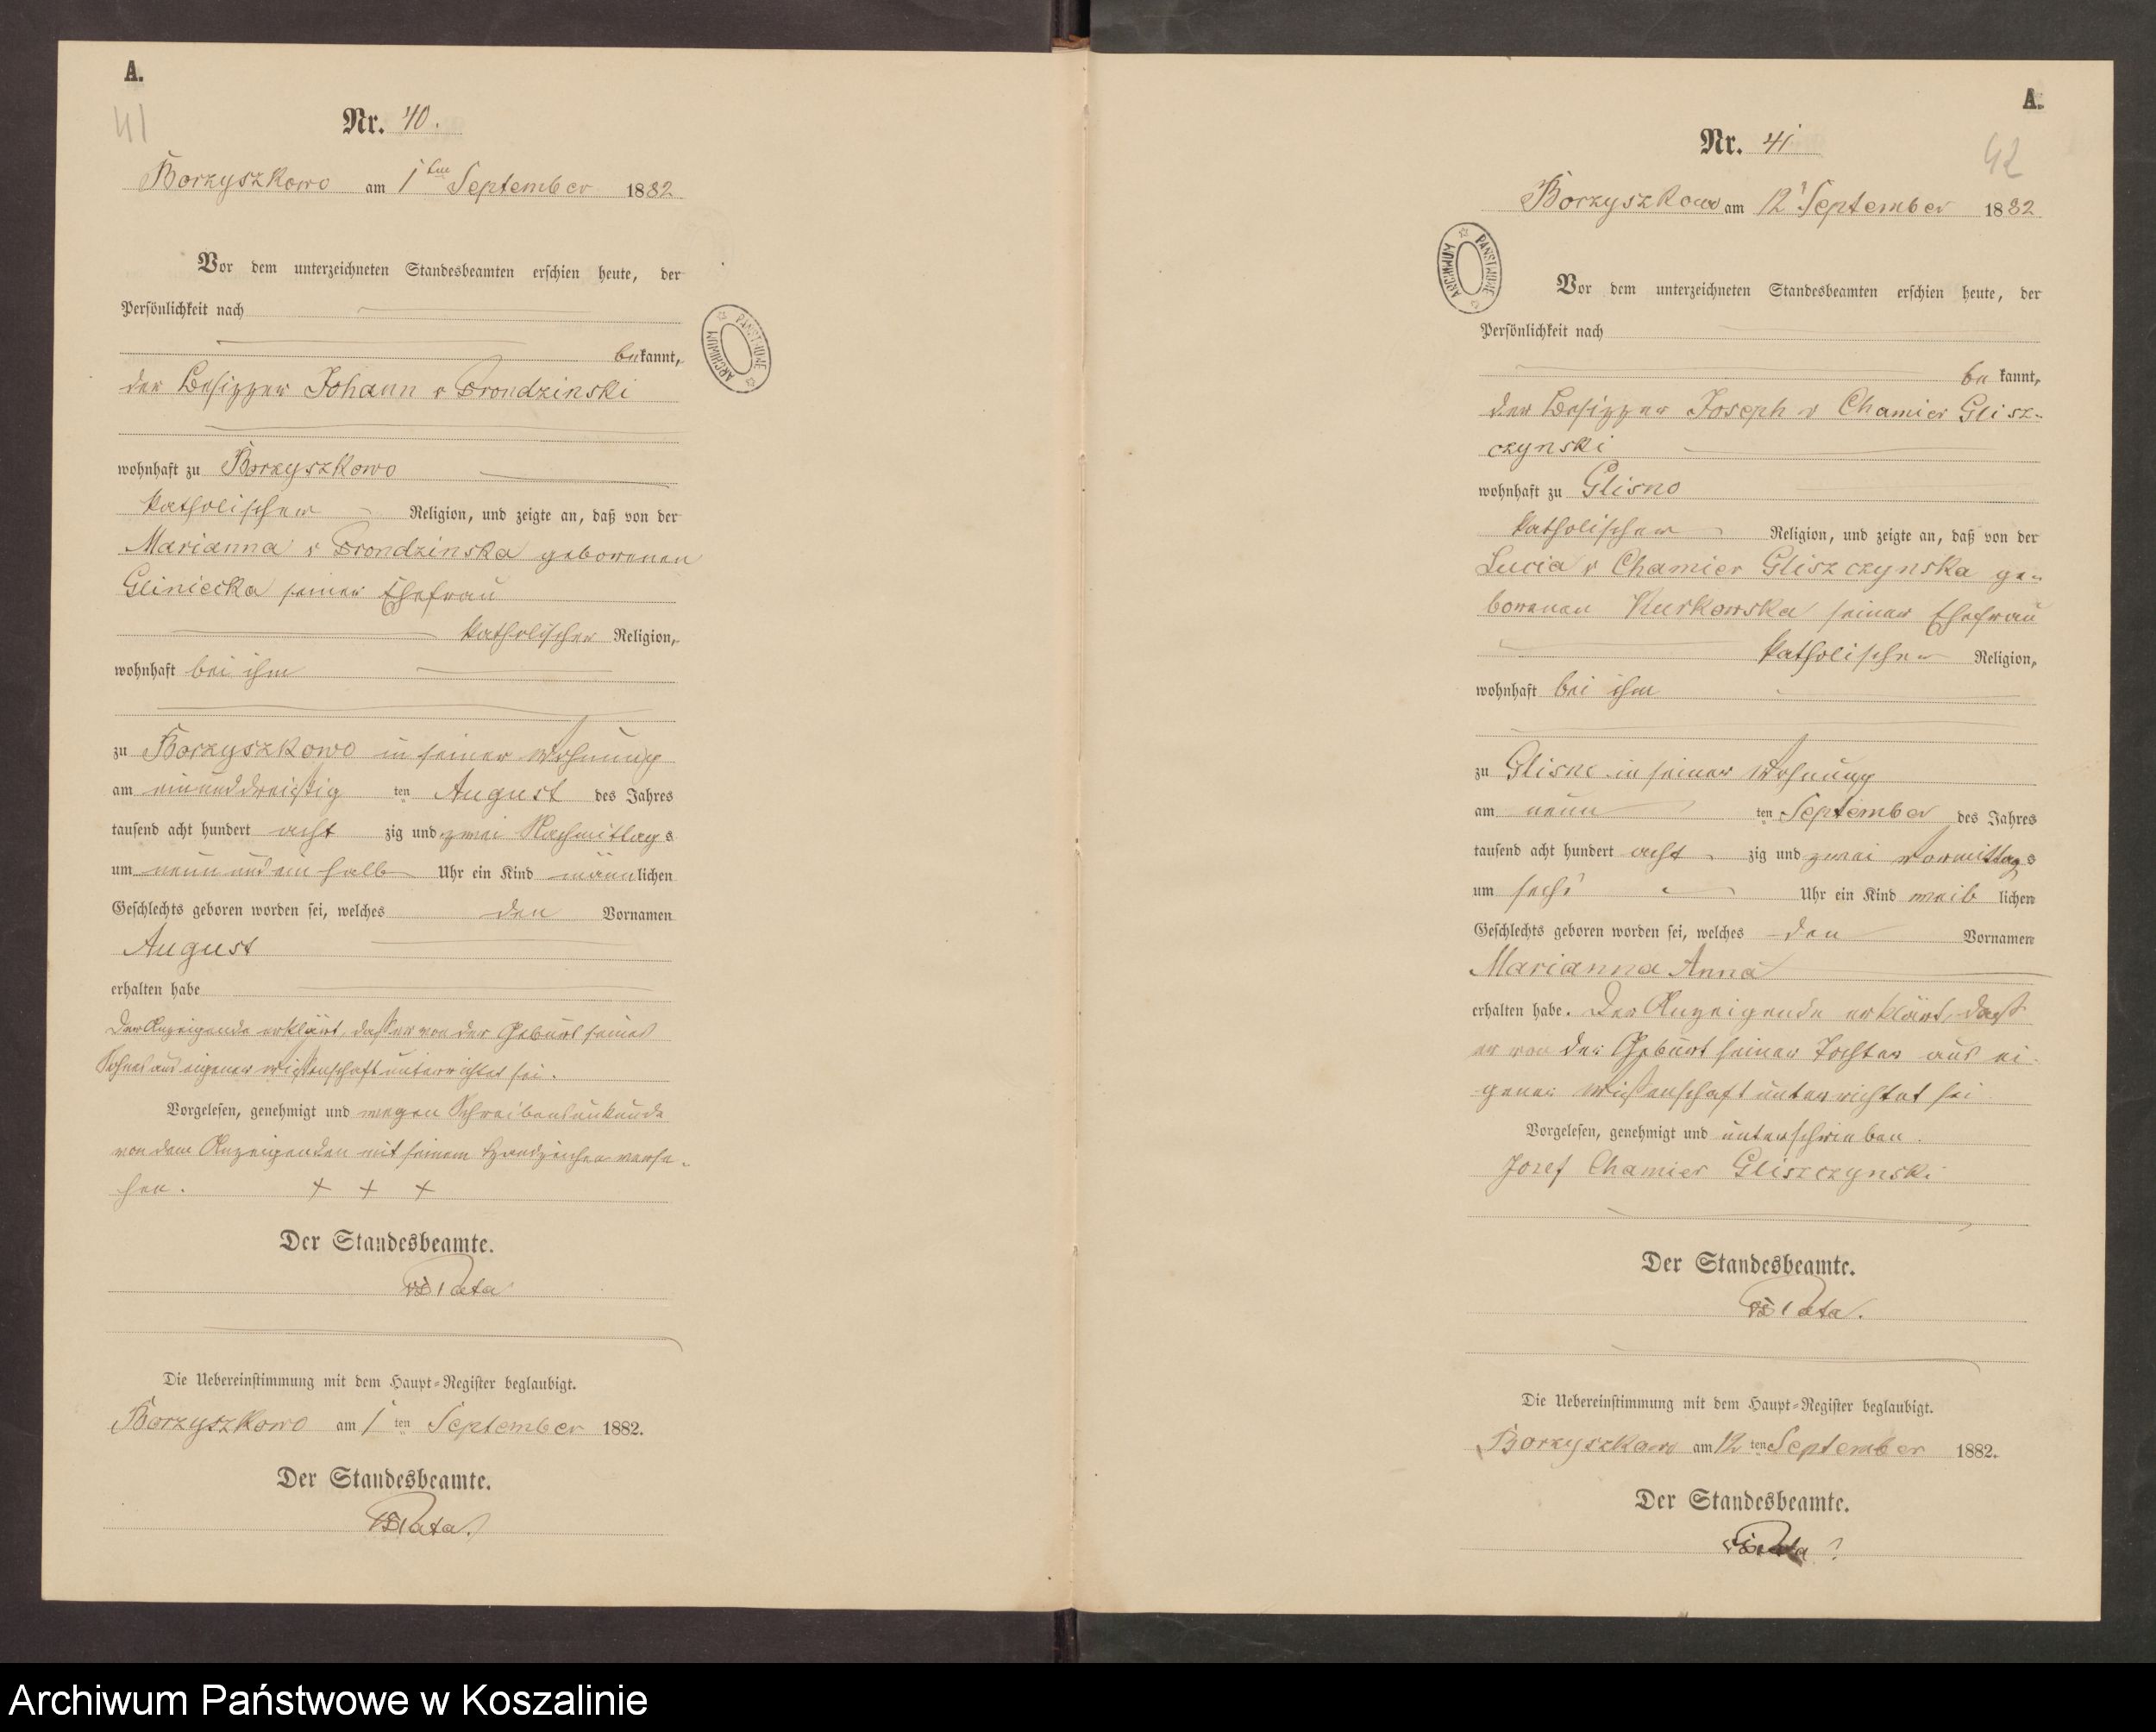 A.
41
Nr. 40.
Borzyszkowo am 1ten September 1882
Vor dem unterzeichneten Standesbeamten erschien heute, der
Persönlichkeit nach
bekannt,
der Besitzer Johann v Brondzinski
wohnhaft zu Borzyszkowo
katholischer Religion, und zeigte an, daß von der
Marianna v Brondzinska geborenen
Gliniecka seiner Ehefrau
katholischer Religion,
wohnhaft bei ihm
zu Borzyszkowo in seiner Wohnung
am einunddreißig ten August des Jahres
tausend acht hundert acht zig und zwei Nachmittags
um neun und ein halb Uhr ein Kind männlichen
Geschlechts geboren worden sei, welches den Vornamen
August
erhalten habe
Der Anzeigende erklärt, daß er von der Geburt seines
Sohnes aus eigener Wißenschaft unterrichtet sei.
Vorgelesen, genehmigt und wegen Schreibensunkunde
von dem Anzeigenden mit seinem Handzeichen verse-
hen. + + +
Der Standesbeamte.
Pata
Die Uebereinstimmung mit dem Haupt-Register beglaubigt.
Borzyszkowo am 1ten September 1882.
Der Standesbeamte.
Pata.
ARCHIWUM PAŃSTWOWE
A.
42
Nr. 41
Borzyszkowo am 12 September 1882
ARCHIWUM PAŃSTWOWE
Vor dem unterzeichneten Standesbeamten erschien heute, der
Persönlichkeit nach
be kannt,
der Besitzer Joseph v Chamier Glisz-
czynski
wohnhaft zu Glisno
katholischer Religion, und zeigte an, daß von der
Lucia v Chamier Gliszczynska ge-
borenen Kurkowska seiner Ehefrau
katholischer Religion,
wohnhaft bei ihm
zu Glisno in seiner Wohnung
am neun ten September des Jahres
tausend acht hundert acht zig und zwei Vormittags
um sechs Uhr ein Kind weib lichen
Geschlechts geboren worden sei, welches den Vornamen
Marianna Anna
erhalten habe. Der Anzeigende erklärt, daß
er von der Geburt seiner Tochter aus ei-
gener Wißenschaft unterrichtet sei
Vorgelesen, genehmigt und unterschrieben.
Jozef Chamier Gliszczynski
Der Standesbeamte.
Pata.
Die Uebereinstimmung mit dem Haupt-Register beglaubigt.
Borzyszkowo am 12 ten September 1882.
Der Standesbeamte.
Pata
Archiwum Państwowe w Koszalinie